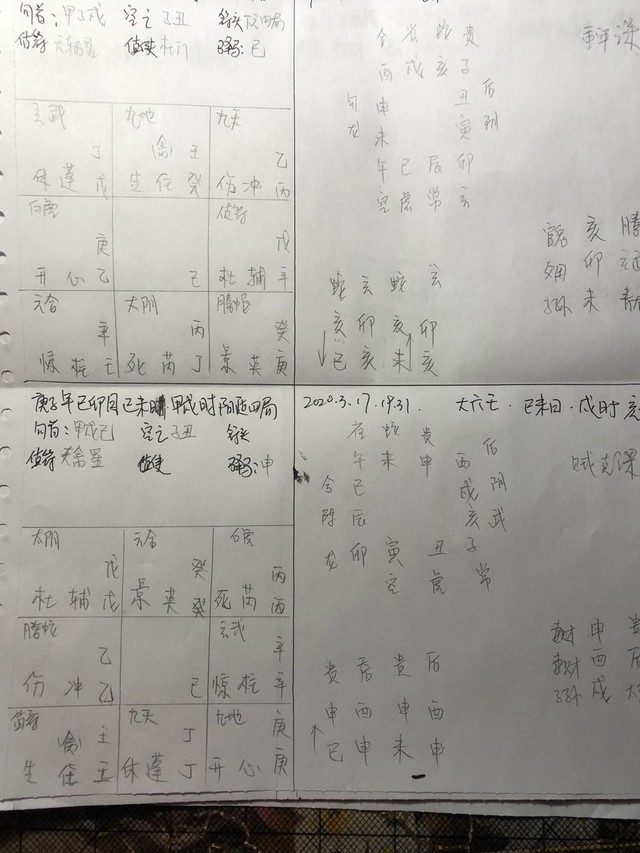 旬首:甲子戊 空亡子丑 阳四局
值符 天辅星 值使杜门 驿马:巳
玄武 九地 九天
丁 禽 壬 乙
休 蓬 戊 生 任 癸 伤 冲 丙
白虎 值符
庚 戊
开 心 乙 己 杜 辅 辛
六合 太阴 腾蛇
辛 丙 癸
惊 柱 壬 死 芮 丁 景 英 庚
合 雀 蛇 贵
酉 戌 亥 子
勾 申 丑 后
龙 未 寅 阴
午 巳 辰 卯
空 虎 常 玄
蛇 玄 蛇 玄
亥 卯 亥 卯
巳 亥 未 亥
亥 腾
卯 玄
未 青
庚子年己卯月己未日甲戌时阳四局
旬首:甲戌己 空亡子丑
值符 天禽星 值使 驿马:申
太阴 六合 白虎
戊 癸 丙
杜 辅 戊 景 英 癸 死 芮 丙
腾蛇 玄武
乙 辛
伤 冲 乙 己 惊 柱 辛
值符 九天 九地
禽 壬 丁 庚
生 任 壬 休 蓬 丁 开 心 庚
2020.3.17.19:31. 大六壬.己未日.戌时 亥
雀 蛇 贵
午 未 申 酉 后
合 巳 戌 阴
辰 亥 武
龙 卯 寅 丑 子
空 虎 常
贼克课
贵 后 贵 后
申 酉 申 酉
巳 申 未 申
申 贵
酉 后
戌